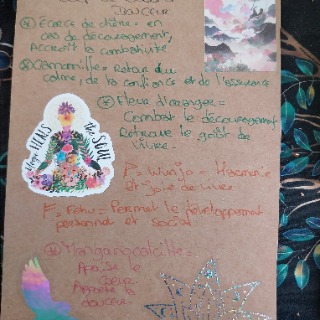 Douceur
Ecorce de chêne = en
cas de découragement,
Accroît la combativité
Camomille = Retour du
calme, de la confiance et de l'assurance
Fleur d'oranger =
Combat le découragement
Retrouve le goût de
vivre.
Yoga HEALS The SOUL
P = Wunjo = Harmonie
et Joie de vivre
F = Fehu = Permet le développement
personnel et social
Mangangocalcite =
Apaise le
coeur
Apporte la
douceur.